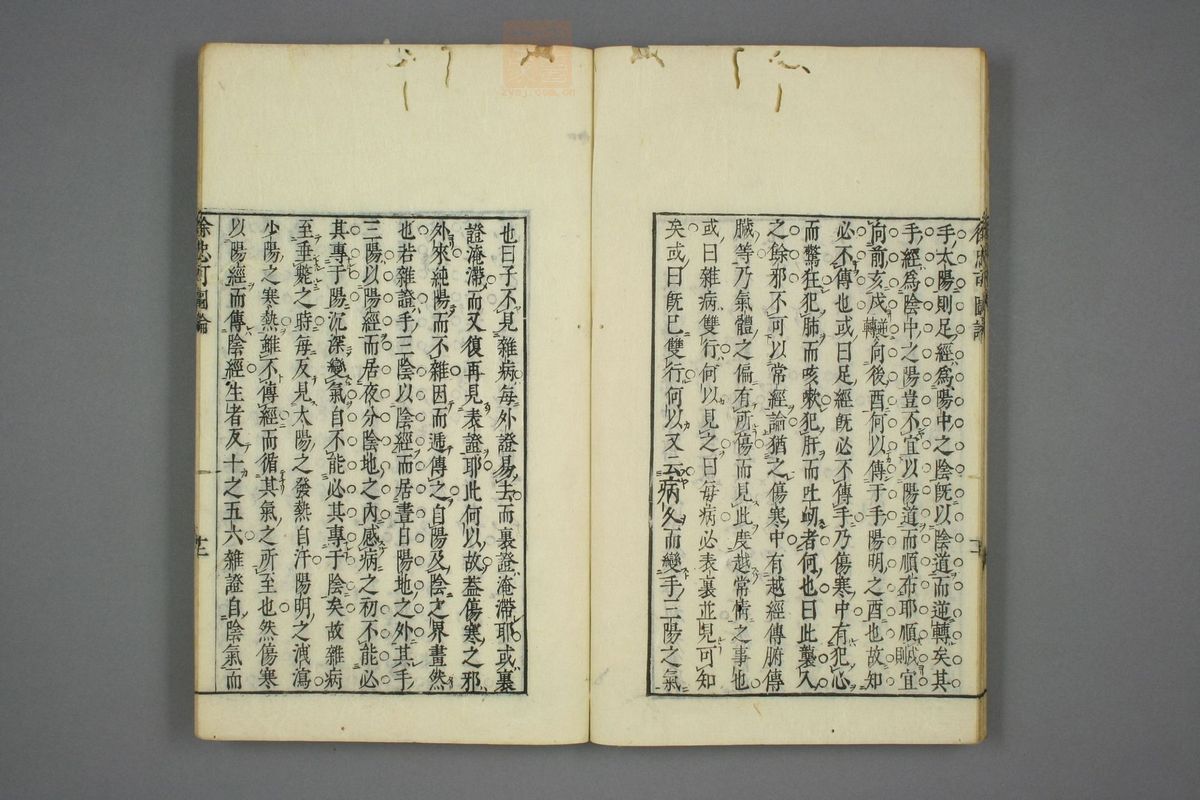 手太陽則足經爲陽中之陰旣以陰道而逆轉矣其
手經爲陰中之陽豈不宜以陽道而順布耶順則宜
向前亥戌逆轉向後酉何以傳于手陽明之酉也故知
必不傳也或曰足經旣必不傳手乃傷寒中有犯心
而驚狂犯肺而咳嗽犯肝而吐衂者何也曰此襲入
之餘邪不可以常經論猶之傷寒中有越經傳腑傳
臟等乃氣體之偏有所傷而見此度越常情之事也
或曰雜病雙行何以見之曰每病必表裏並見可知
矣或曰旣已雙行何以又云病久而變手三陽之氣
也曰子不見雜病每外證易去而裏證淹滯耶或裏
證淹滯而又復再見表證耶此何以故葢傷寒之邪
外來純陽而不雜因而遞傳之自陽及陰之界畫然
也若雜證手三陰以陰經而居晝日陽地之外其手
三陽以陽經而居夜分陰地之內感病之初不能必
其專于陽沉深變氣自不能必其專于陰矣故雜病
至垂斃之時每反見太陽之發熱自汗陽明之洩瀉
少陽之寒熱雖不傳經而循其氣之所至也然傷寒
以陽經而傳陰經生者反十之五六雜證自陰氣而
徐忠可圖論